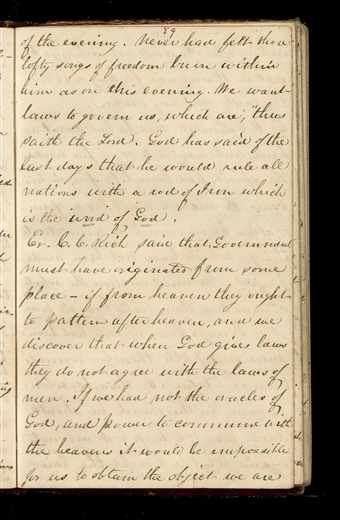 89
of the evening. Never had felt those
lofty songs of freedom burn within
him as on this evening. We want
laws to govern us, which are, "thus
saith the Lord. God has said of the
last days that he would rule all
nations with a rod of Iron which
is the word of God.
Er. C. C. Rich said that Government
must have originated from some
place - if from heaven they ought
to pattern after heaven, and we
discover that when God gives laws
they do not agree with the laws of
men. If we had not the oracles of
God, and power to commune with
the heavens it would be impossible
for us to obtain the object we are